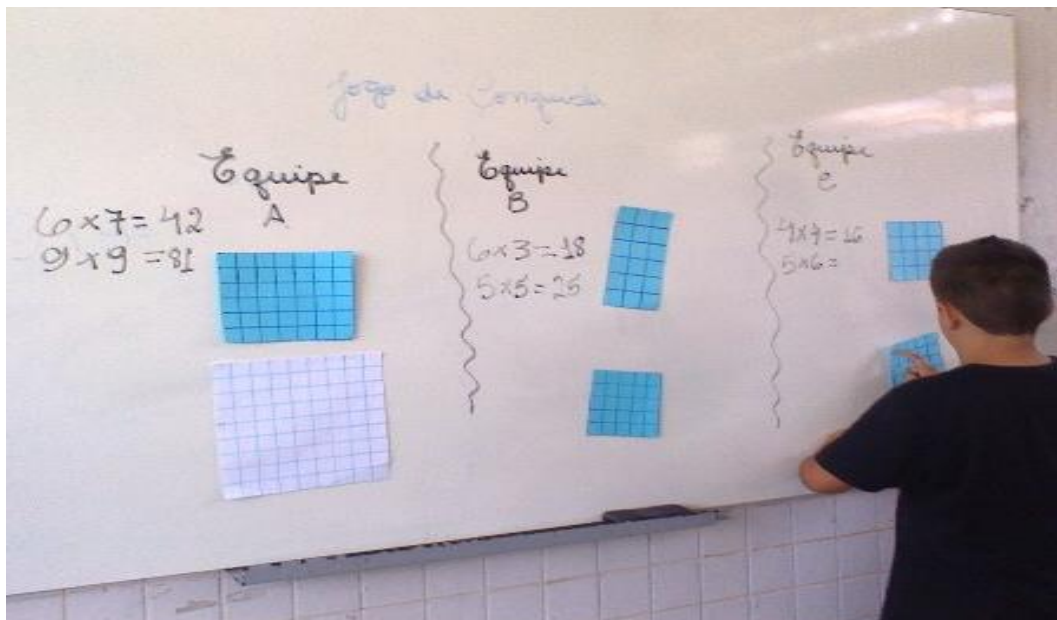 Jogo da Conquista
Equipe
A
6 x 7 = 42
9 x 9 = 81
Equipe
B
6x3=18
5x5=25
Equipe
C
4x4=16
5x6=